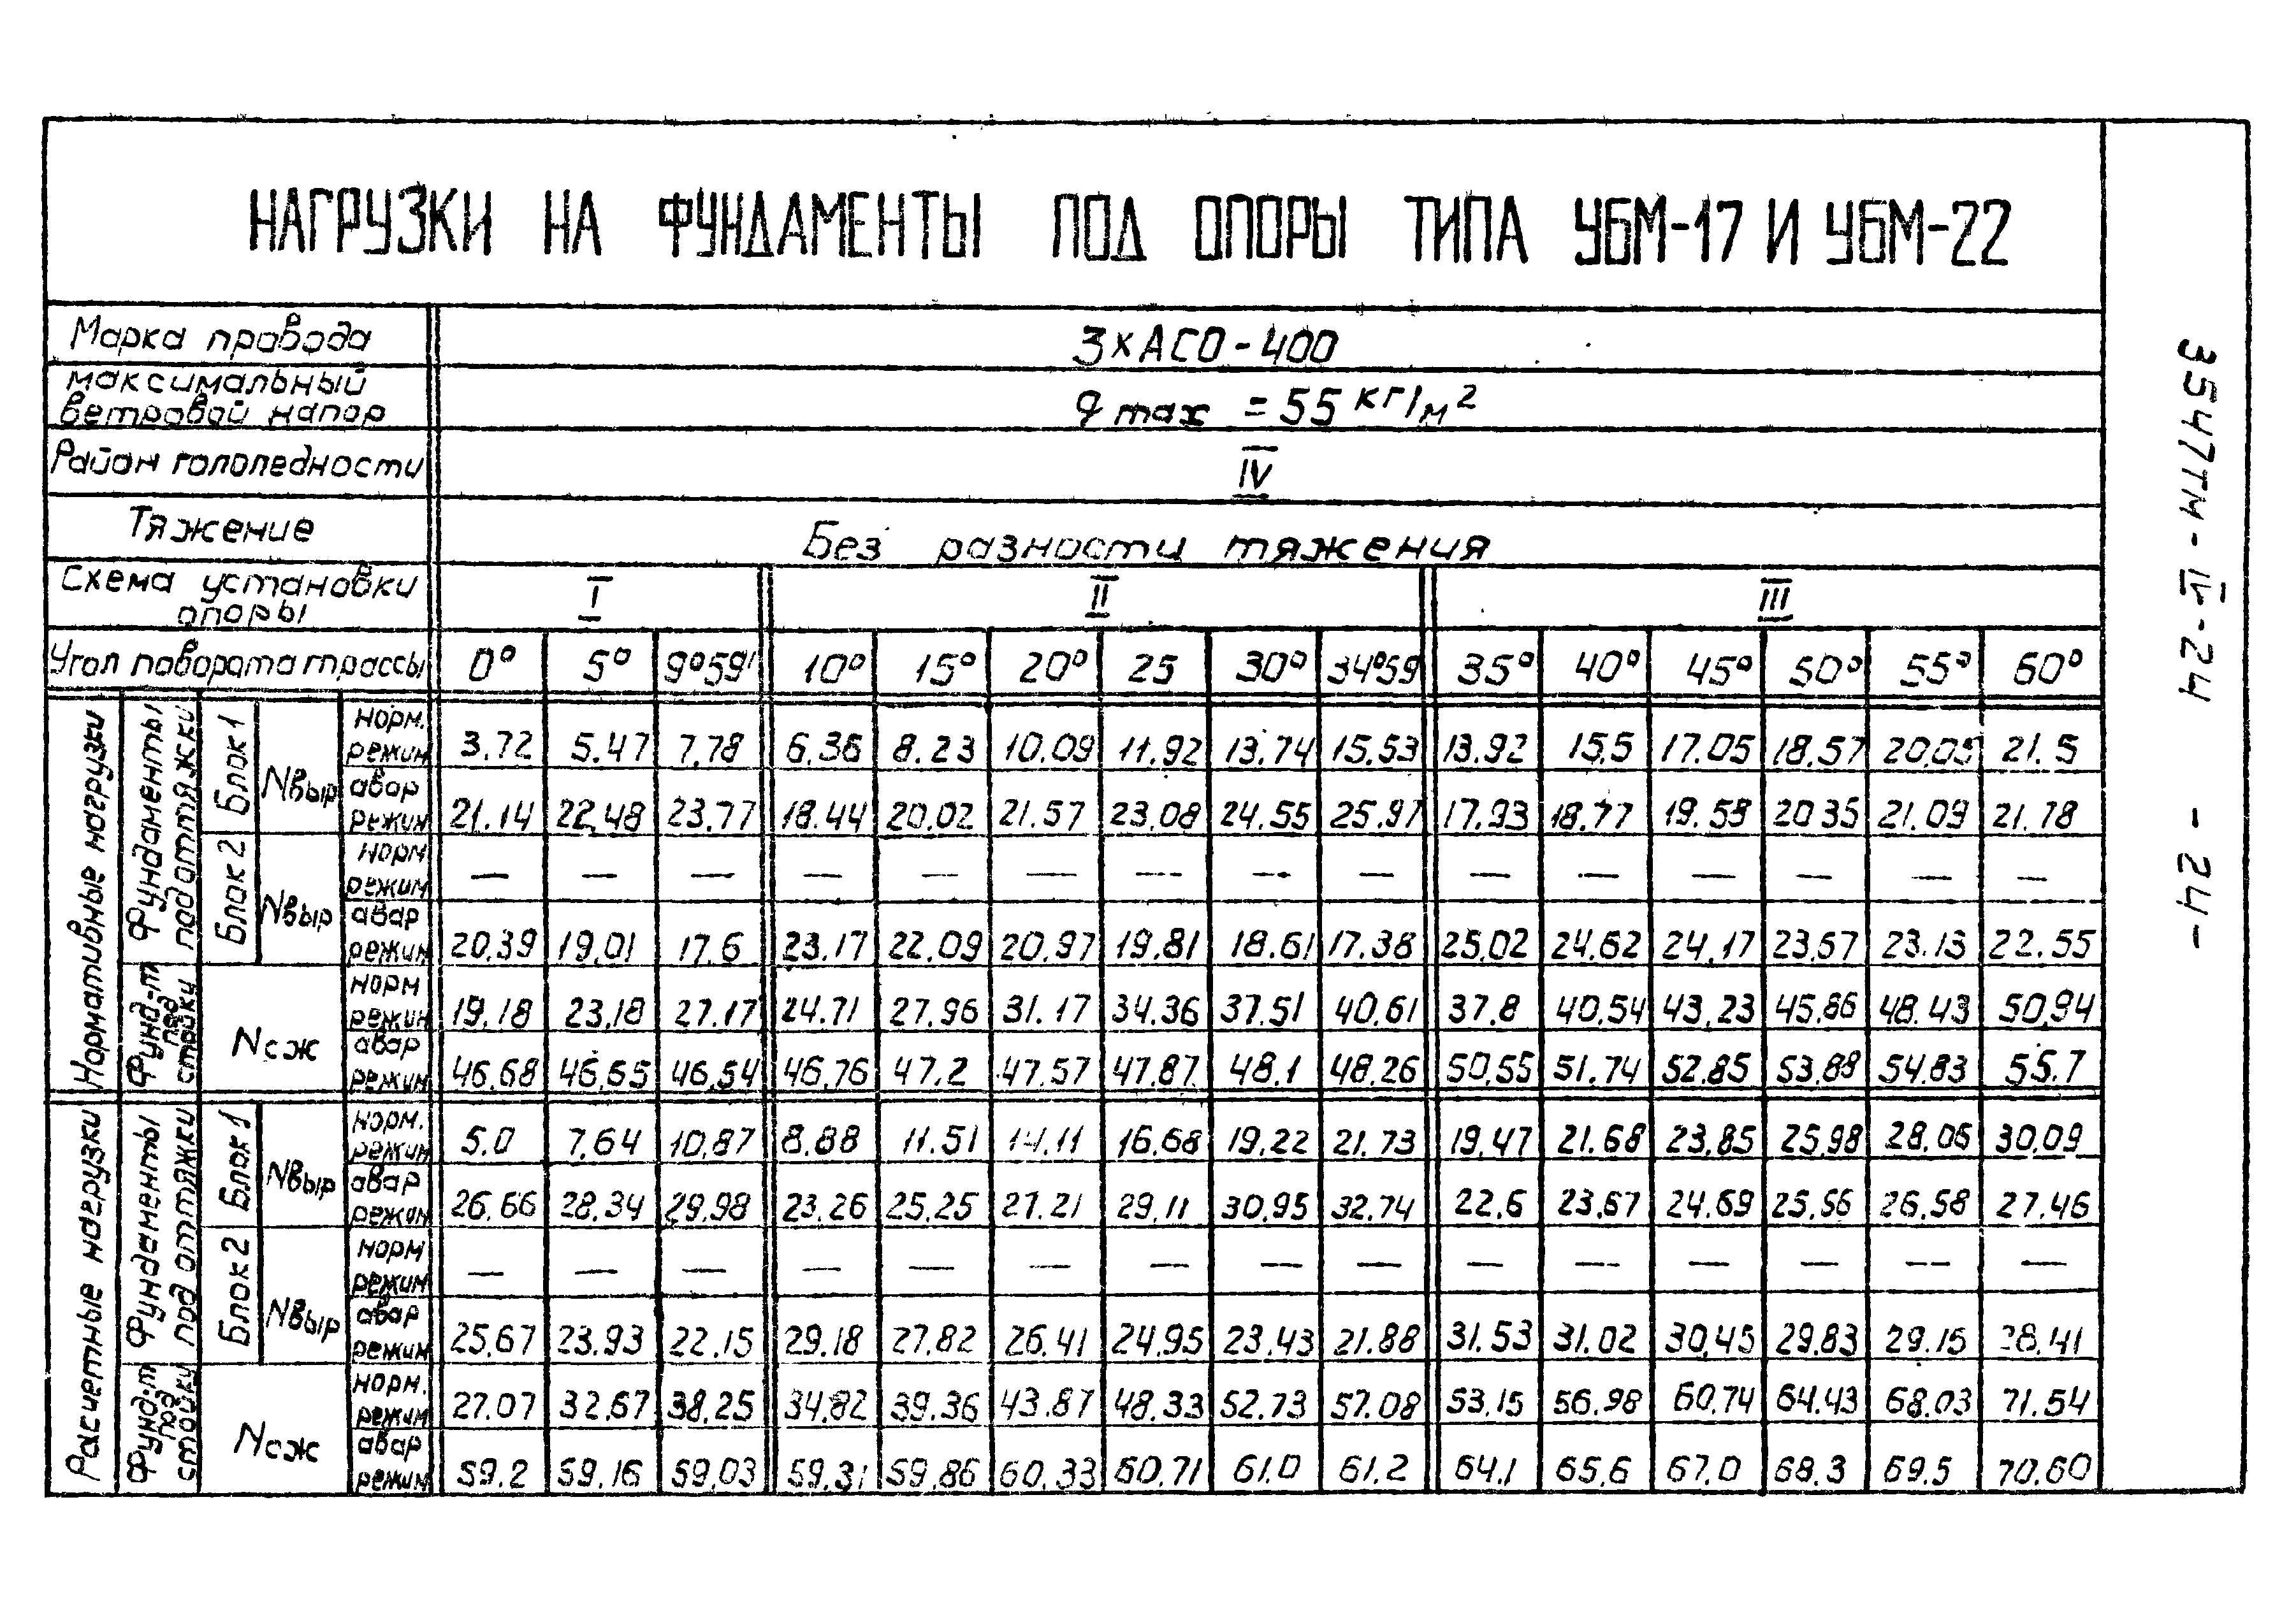 НАГРУЗКИ НА ФУНДАМЕНТЫ ПОД ОПОРЫ ТИПА УБМ-17 И УБМ-22
Марка провода 3×АСО-400
максимальный ветровой напор q max = 55 кг/м²
Район гололедности IV
Тяжение Без разности тяжения
Схема установки опоры I II III
Угол поворота трассы 0° 5° 9°59' 10° 15° 20° 25 30° 34°59 35° 40° 45° 50° 55° 60°
Нормативные нагрузки
Фундаменты под оттяжки
Блок 1 Nвыр
норм. режим 3.72 5.47 7,78 6.36 8.23 10.09 11.92 13.74 15.53 13.92 15,5 17.05 18.57 20,05 21.5
авар режим 21.14 22,48 23.77 18.44 20.02 21.57 23,08 24.55 25.97 17.93 18.77 19.58 20 35 21.09 21.78
Блок 2 Nвыр
норм режим — — — — — — — — — — — — — — —
авар режим 20.39 19,01 17.6 23.17 22.09 20.97 19.81 18.61 17.38 25,02 24.62 24,17 23,67 23.13 22.55
Фунд-т под стойки Nсж
норм режим 19.18 23,18 27.17 24.71 27.96 31.17 34.36 37.51 40,61 37.8 40,54 43,23 45,86 48.43 50,94
авар режим 46,68 46,65 46,54 46,76 47.2 47.57 47.87 48.1 48.26 50,55 51.74 52.85 53.88 54.83 55.7
Расчетные нагрузки
Фундаменты под оттяжки
Блок 1 Nвыр
норм. режим 5.0 7,64 10,87 8.88 11.51 14.11 16,68 19,22 21.73 19,47 21.68 23,85 25,98 28.06 30,09
авар режим 26.66 28.34 29,98 23.26 25,25 27.21 29,11 30,95 32.74 22.6 23,67 24.69 25,66 26.58 27.46
Блок 2 Nвыр
норм режим — — — — — — — — — — — — — — —
авар режим 25,67 23.93 22.15 29.18 27.82 26.41 24,95 23,43 21.88 31.53 31.02 30,45 29.83 29.15 28,41
Фунд-т под стойку Nсж
норм. режим 27.07 32,67 38,25 34,82 39.36 43.87 48.33 52.73 57.08 53,15 56.98 60,74 64.43 68.03 71.54
авар режим 59.2 59.16 59,03 59.31 59,86 60.33 60.71 61.0 61.2 64.1 65,6 67.0 68.3 69.5 70.60
- 24 -